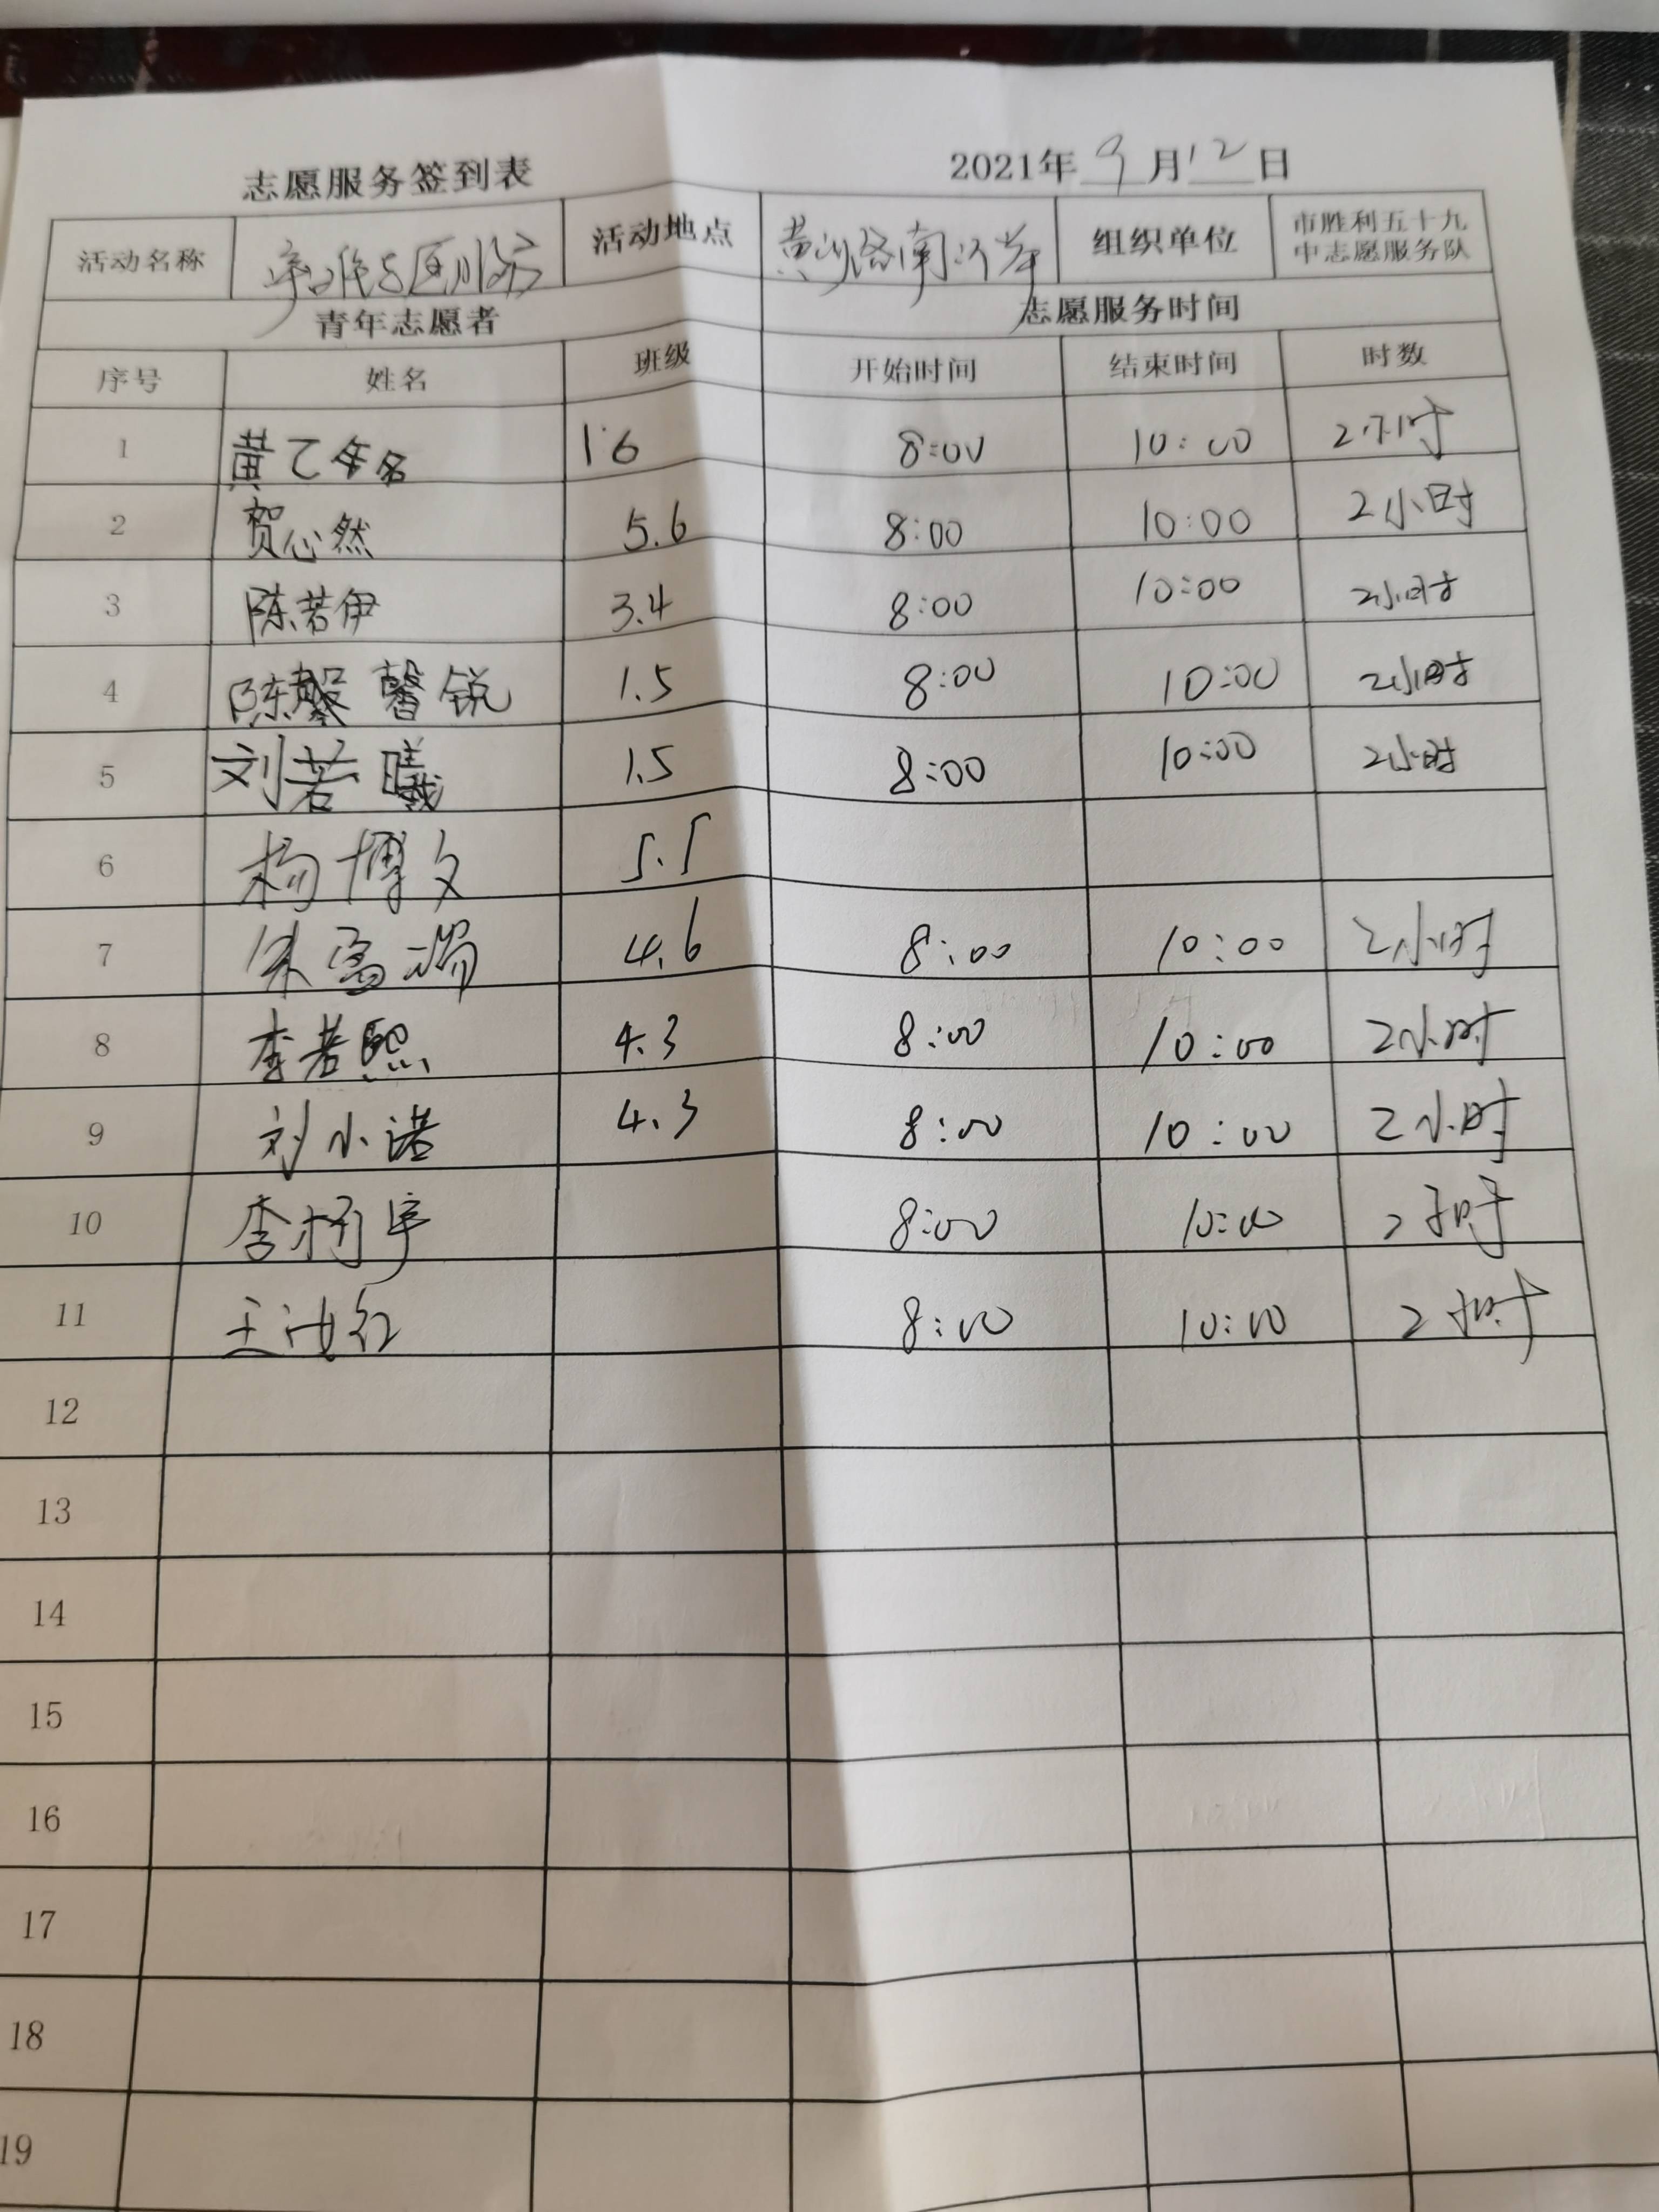 志愿服务签到表 2021年9月12日
活动名称 活动地点 黄河路南 组织单位 市胜利五十九中志愿服务队
青年志愿者 志愿服务时间
序号 姓名 班级 开始时间 结束时间 时数
1 黄乙 1.6 8:00 10:00 2小时
2 贺心然 5.6 8:00 10:00 2小时
3 陈若伊 3.4 8:00 10:00 2小时
4 陈馨锐 1.5 8:00 10:00 2小时
5 刘若曦 1.5 8:00 10:00 2小时
6 杨博文 5.5
7 4.6 8:00 10:00 2小时
8 李若熙 4.3 8:00 10:00 2小时
9 刘小诺 4.3 8:00 10:00 2小时
10 李 宇 8:00 10:00 2小时
11 王 红 8:00 10:00 2小时
12
13
14
15
16
17
18
19